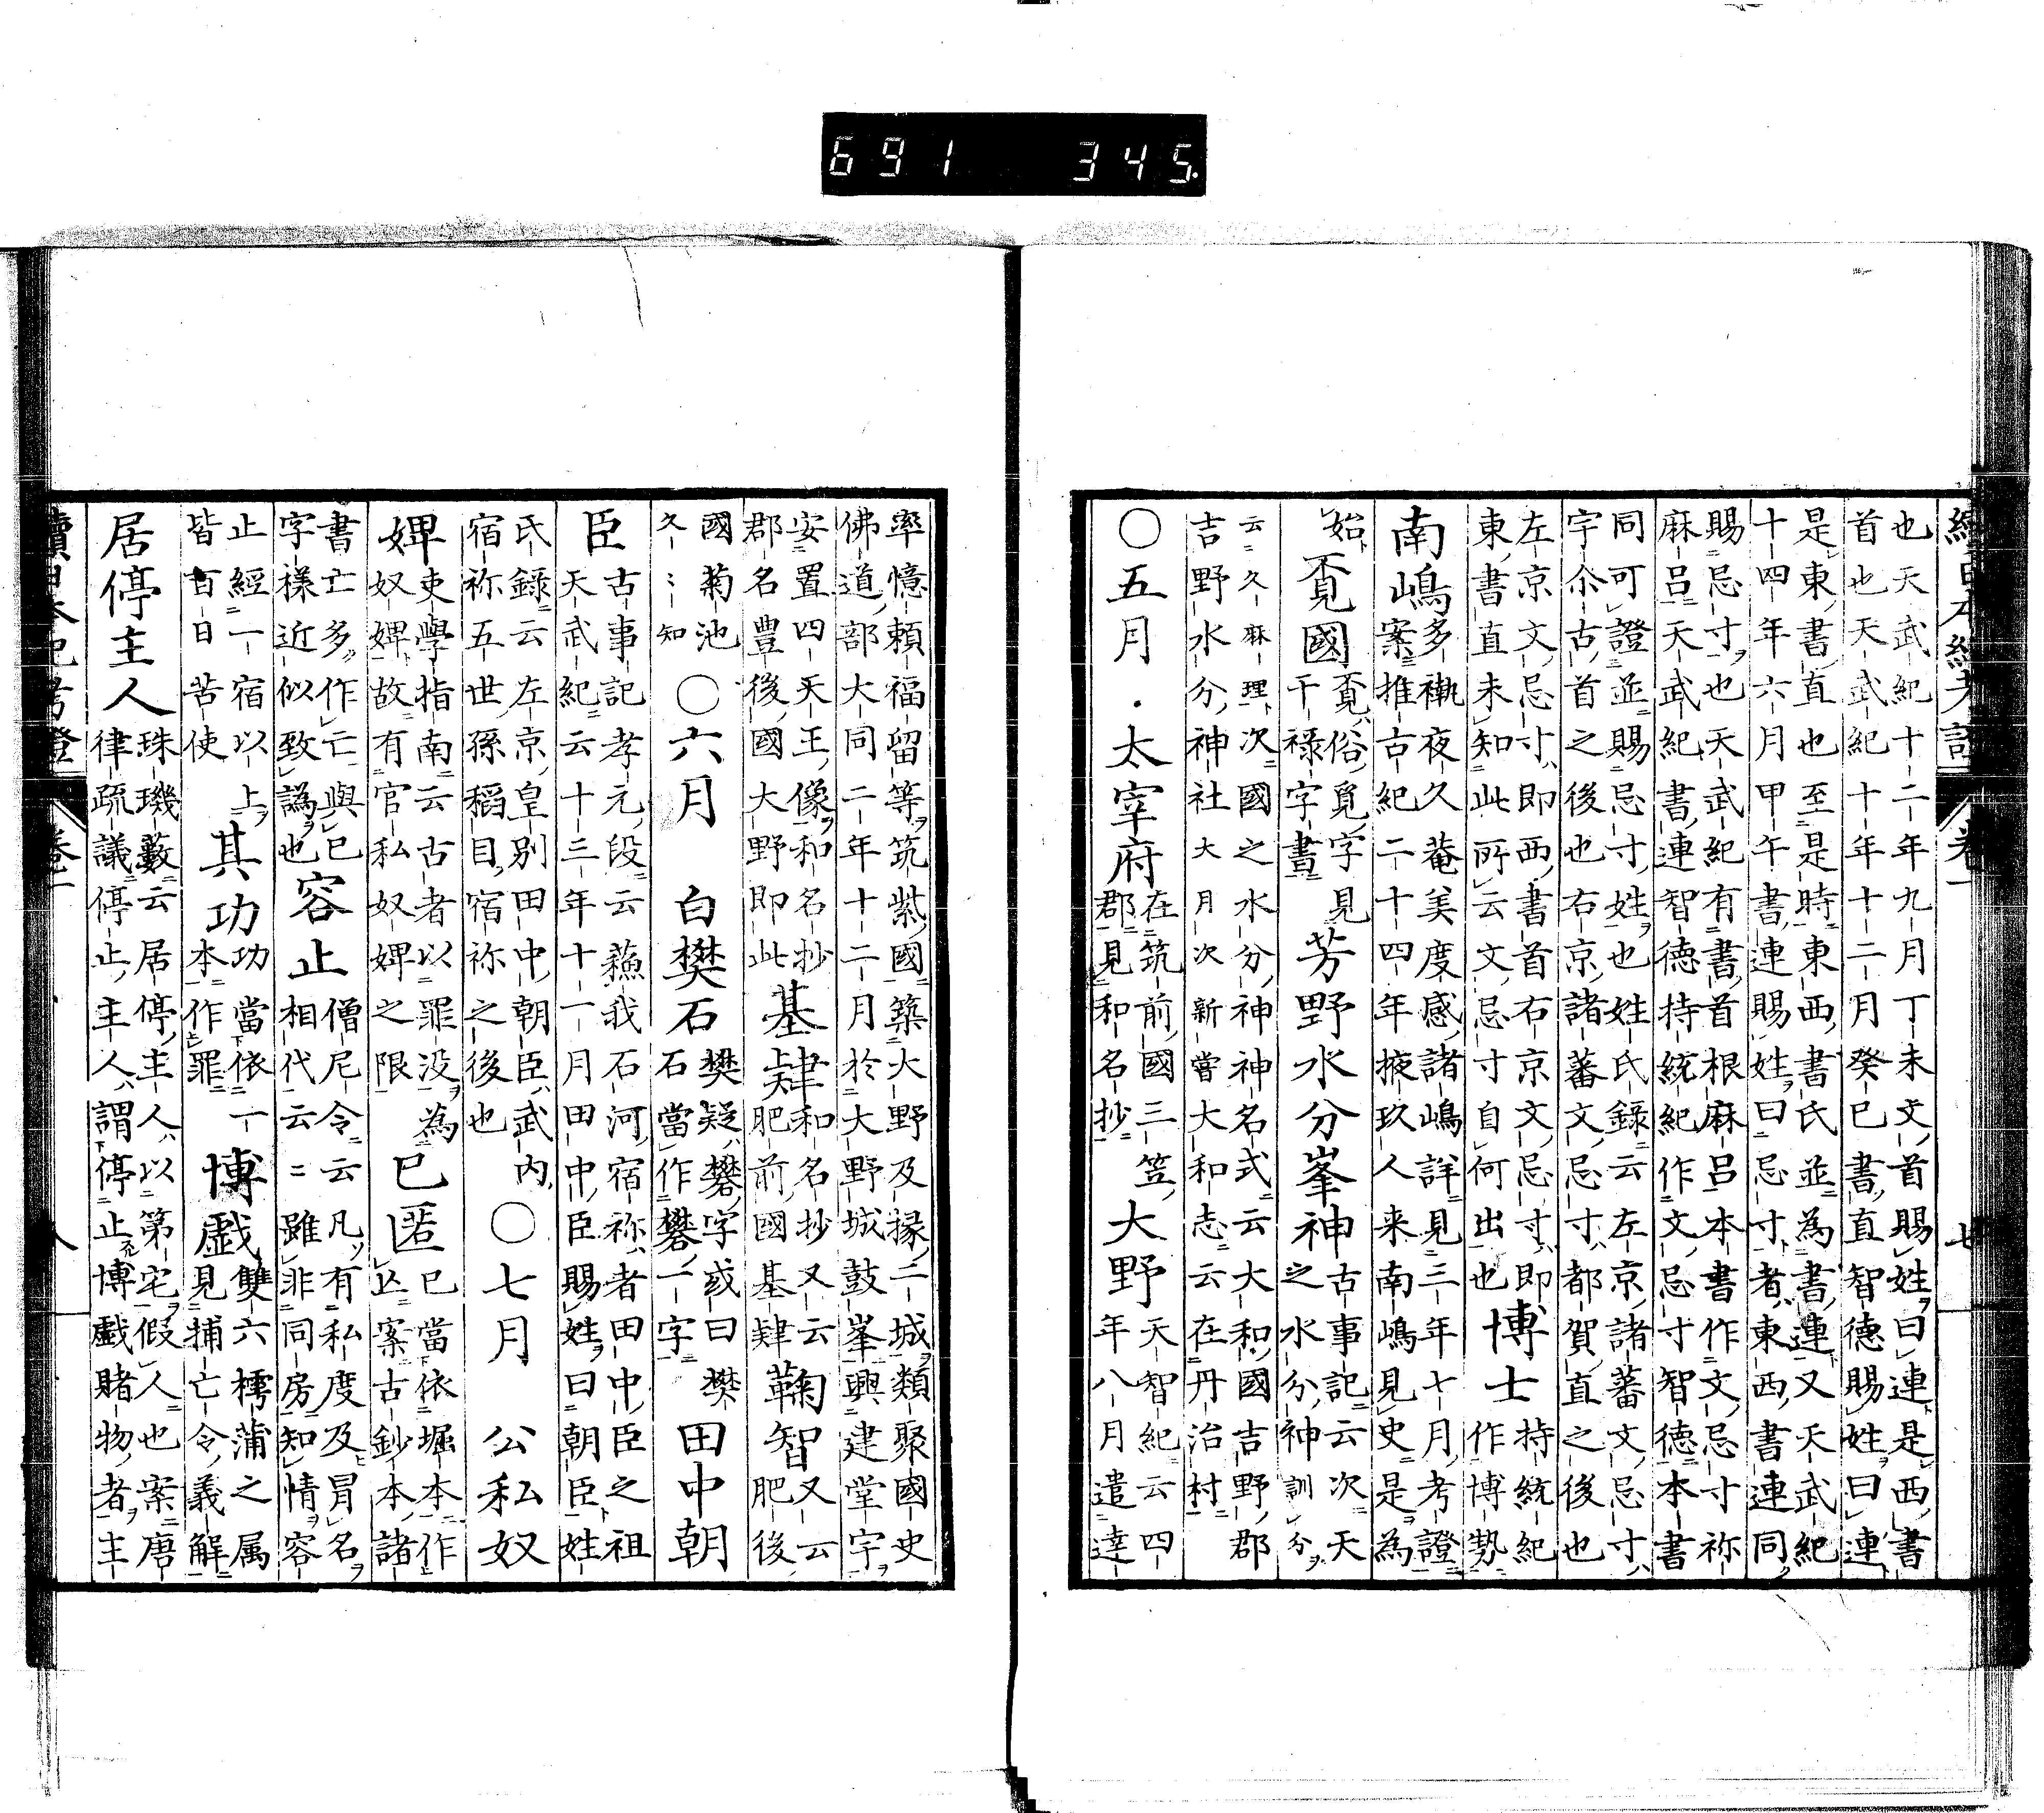 691 345
續日本紀考證 卷一 七
也天武紀十二年九月丁未文首賜姓曰連是西書
首也天武紀十年十二月癸巳書直智德賜姓曰連
是東書直也至是時東西書氏並為書連又天武紀
十四年六月甲午書連賜姓曰忌寸者東西書連同
賜忌寸也天武紀有書首根麻呂本書作文忌寸祢
麻呂天武紀書連智德持統紀作文忌寸智德本書
同可證並賜忌寸姓也姓氏錄云左京諸蕃文忌寸
宇尒古首之後也右京諸蕃文忌寸都賀直之後也
左京文忌寸即西書首右京文忌寸即
東書直未知此所云文忌寸自何出也
博士
持統紀
作博勢
南嶋
多褹夜久菴美度感諸嶋詳見三年七月考證
案推古紀二十四年掖玖人来南嶋見史是為
始
覔國
覔俗覓字見
干祿字書
芳野水分峯神
古事記云次天
之水分神訓分
云久麻理次國之水分神神名式云大和國吉野郡
吉野水分神社大月次新嘗大和志云在丹治村
○五月
太宰府
在筑前國三笠
郡見和名抄
大野
天智紀云四
年八月遣達
率憶頼福留等筑紫國築大野及椽二城類聚國史
佛道部大同二年十二月於大野城鼓峯興建堂宇
安置四天王像和名抄
郡名豊後國大野即此
基肄
和名抄又云
肥前國基肄
鞠智
又云
肥後
國菊池
久々知
○六月
白樊石
樊疑礬字或曰樊
石當作礬一字
田中朝
臣
古事記孝元段云蘓我石河宿祢者田中臣之祖
天武紀云十三年十一月田中臣賜姓曰朝臣姓
氏錄云左京皇別田中朝臣武内
宿祢五世孫稻目宿祢之後也
○七月
公私奴
婢
吏學指南云古者以罪没為
奴婢故有官私奴婢之限
巳匿
巳當依堀本作
亾案古鈔本諸
書亡多作亡與巳
字様近似致譌也
容止
僧尼令云凡有私度及冐名
相代云二雖非同房知情容
止經一宿以上
皆百日苦使
其功
功當依一
本作罪
博戯
雙六樗蒲之属
見捕亡令義解
居停主人
珠璣藪云居停主人以第宅假人也案唐
律疏議停止主人謂停止博戲賭物者主
續日本紀考證 卷一 八